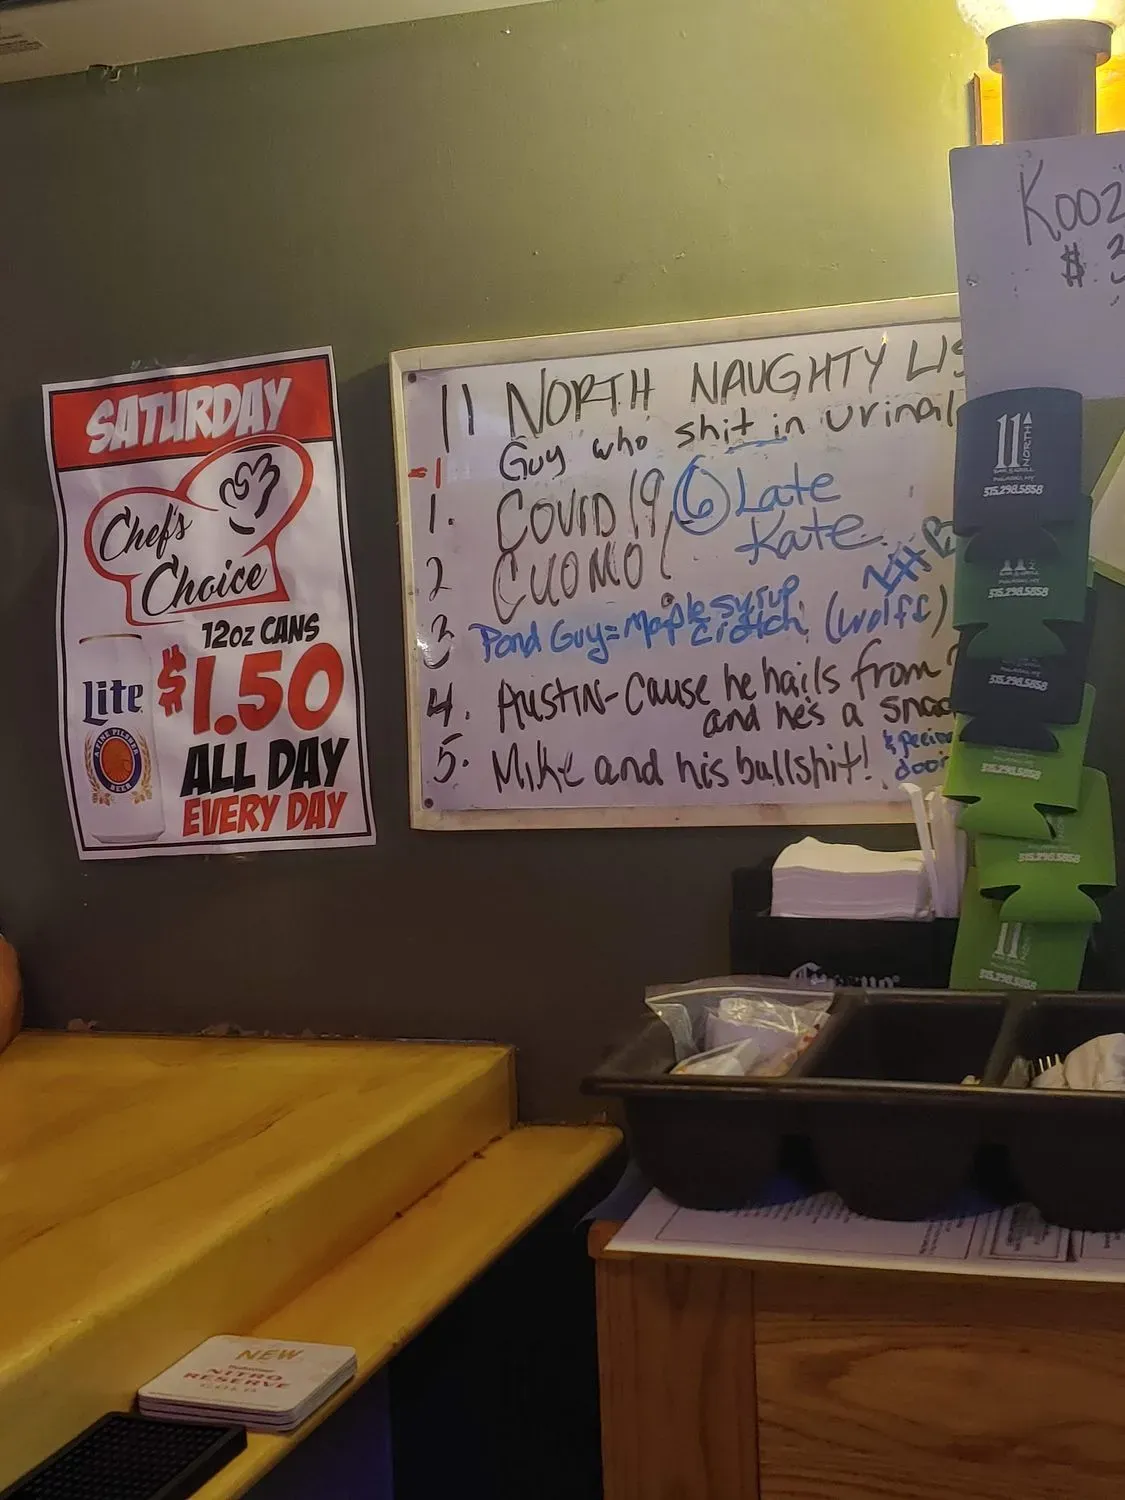 SATURDAY
Chef's
Choice
12oz CANS
$1.50
ALL DAY
EVERY DAY
Lite
A FINE PILSNER
BEER
11 NORTH NAUGHTY LIS
-1 Guy who shit in urinal
1. COVID 19
6 Late
Kate
2 CUOMO
3 Pond Guy = Maple syrup
crotch. (wolfe)
4. AUSTIN- Cause he hails from
and he's a snad
5. Mike and his bullshit!
& peein
door
KOOZ
$
11
NORTH
BAR & GRILL
315.298.5858
315.298.5858
315.298.5858
315.298.5858
315.298.5858
11
315.298.5858
NEW
NITRO
RESERVE
GOLD